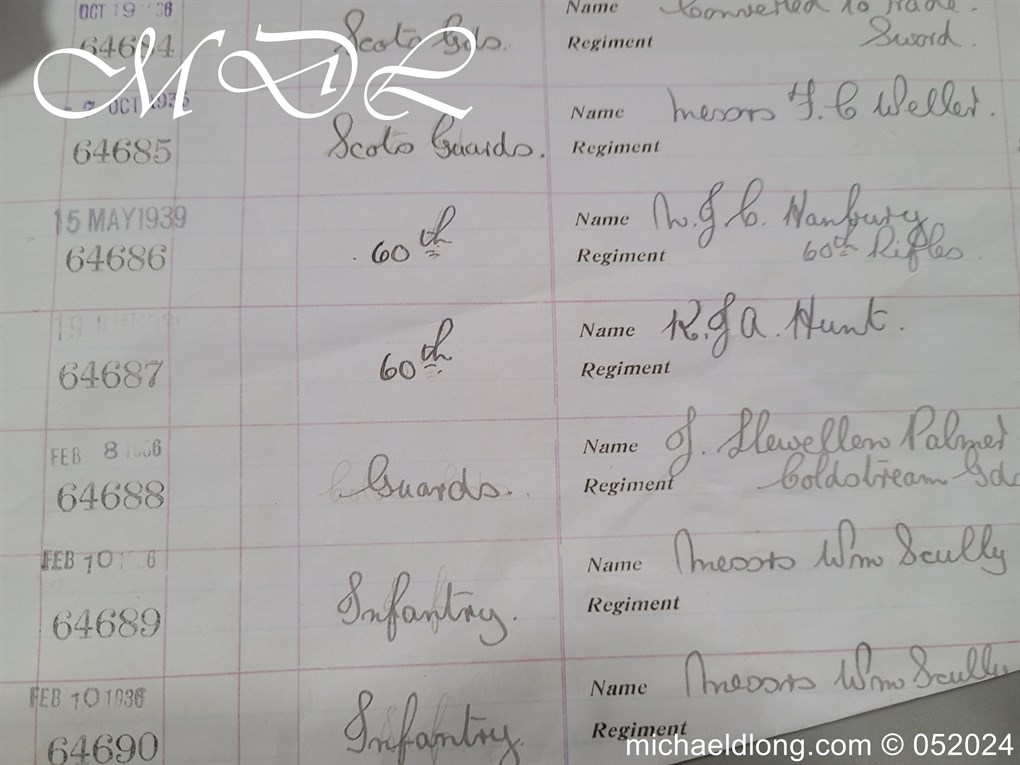 OCT 19 '36 Name Converted to trade.
64684 Scots Gds. Regiment Sword.
MDL
OCT 1935 Name Messrs F. C Weller.
64685 Scots Guards. Regiment
15 MAY 1939 Name J. C. Hanbury
64686 60th Regiment 60th Rifles.
Name R. J A. Hunt.
64687 60th Regiment
FEB 8 1936 Name J. Llewellen Palmer
64688 Guards. Regiment Coldstream Gds
FEB 10 6 Name Messrs Wm Scully
64689 Infantry. Regiment
FEB 10 1936 Name Messrs Wm Scully
64690 Infantry. Regiment
michaeldlong.com © 052024